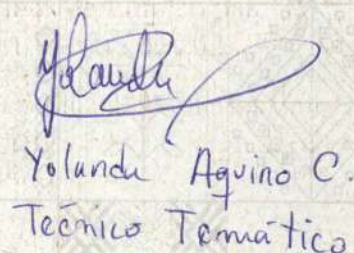 Yolanda
Yolanda Aquino C.
Tecnico Temático